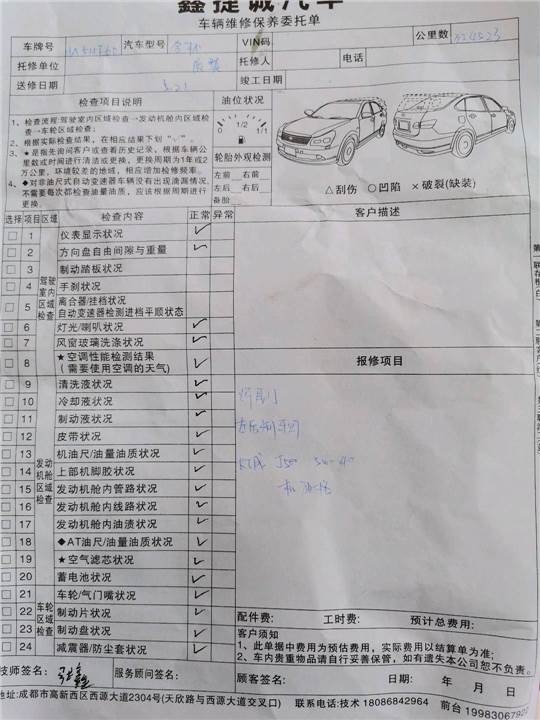 鑫捷诚汽车
车辆维修保养委托单
车牌号 汽车型号 VIN码 公里数
托修单位 托修人 电话
送修日期 5.21 竣工日期
检查项目说明
1、检查流程:驾驶室内区域检查→发动机舱内区域检
查→车轮区域检查;
2、根据实际检查结果，在相应结果下划“✓”。
3、★是指先询问客户或查看历史记录，根据车辆公
里数或时间进行清洁或更换，更换周期为1年或2
万公里，坏境较差的地域，相应增加检修频率。
4、◆对非油尺式自动变速器车辆没有出现滴漏情况，
不需要每次都检查油量油质，应该根据周期进行
更换。
油位状况
0 1/2 1/1
轮胎外观检测
左前 右前
左后 右后
备胎
△刮伤 ○凹陷 ×破裂(缺装)
选择 项目 区域 检查内容 正常 异常
客户描述
驾驶室内区域检查
1 仪表显示状况 ✓
2 方向盘自由间隙与重量 ✓
3 制动踏板状况
4 手刹状况
5 离合器/挂档状况
自动变速器检测进档平顺状态
6 灯光/喇叭状况 ✓
7 风窗玻璃洗涤状况 ✓
8 ★空调性能检测结果 ✓
（需要使用空调的天气)
报修项目
发动机舱区域检查
9 清洗液状况 ✓
10 冷却液状况 ✓
11 制动液状况 ✓
12 皮带状况 ✓
13 机油尺/油量油质状况 ✓
14 上部机脚胶状况 ✓
15 发动机舱内管路状况 ✓
16 发动机舱内线路状况 ✓
17 发动机舱内油渍状况 ✓
18 ◆AT油尺/油量油质状况 ✓
19 ★空气滤芯状况 ✓
20 蓄电池状况 ✓
车轮区域检查
21 车轮/气门嘴状况 ✓
22 制动片状况 ✓
23 制动盘状况 ✓
24 减震器/防尘套状况 ✓
配件费: 工时费: 预计总费用:
客户须知
1、此单据中费用为预估费用，实际费用以结算单为准;
2、车内贵重物品请自行妥善保管，如有遗失本公司恕不负责。
技师签名: 服务顾问签名: 顾客签名: 日期: 年 月 日
地址:成都市高新西区西源大道2304号(天欣路与西源大道交叉口) 联系电话:技术 18086842964 前台